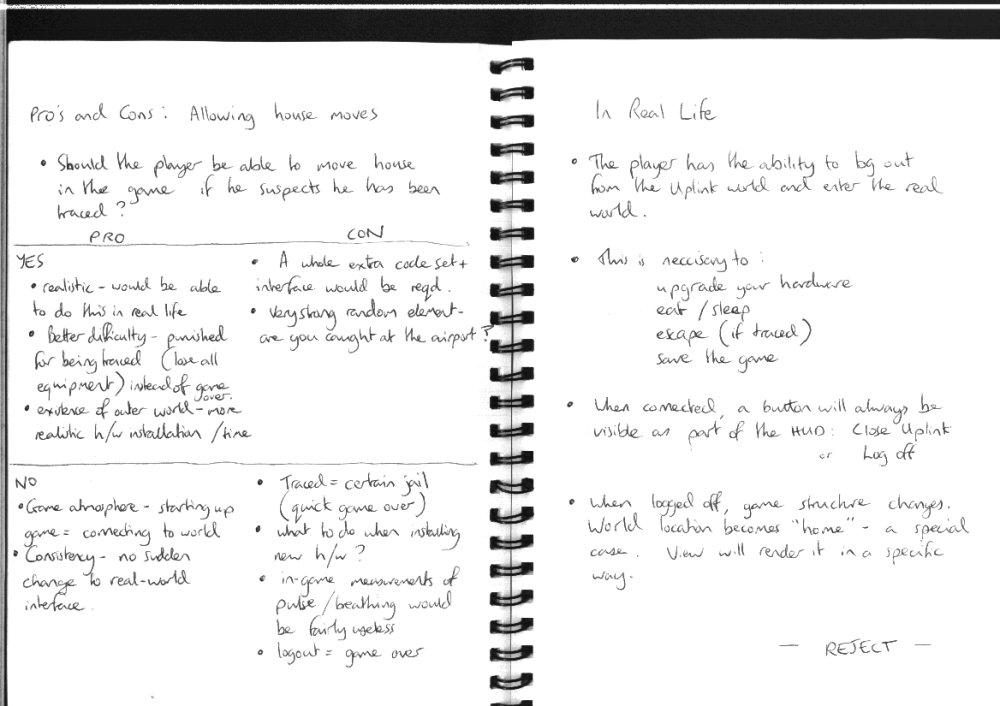 Pro's and Cons: Allowing house moves
• Should the player be able to move house
in the game if he suspects he has been
traced?
PRO
CON
YES
• realistic - would be able
to do this in real life
• Better difficulty - punished
for being traced (lose all
equipment) instead of game
over.
• existence of outer world - more
realistic h/w installation / time
• A whole extra code set +
interface would be reqd.
• Very strong random element -
are you caught at the airport?
NO
• Game atmosphere - starting up
game = connecting to world
• Consistency - no sudden
change to real-world
interface.
• Traced = certain jail
(quick game over)
• what to do when installing
new h/w?
• in-game measurements of
pulse / breathing would
be fairly useless
• logout = game over
In Real Life
• The player has the ability to log out
from the Uplink world and enter the real
world.
• This is neccisary to:
upgrade your hardware
eat / sleep
escape (if traced)
save the game
• When connected, a button will always be
visible as part of the HUD: Close Uplink
or Log off
• When logged off, game structure changes.
World location becomes "home" - a special
case. View will render it in a specific
way.
— REJECT —